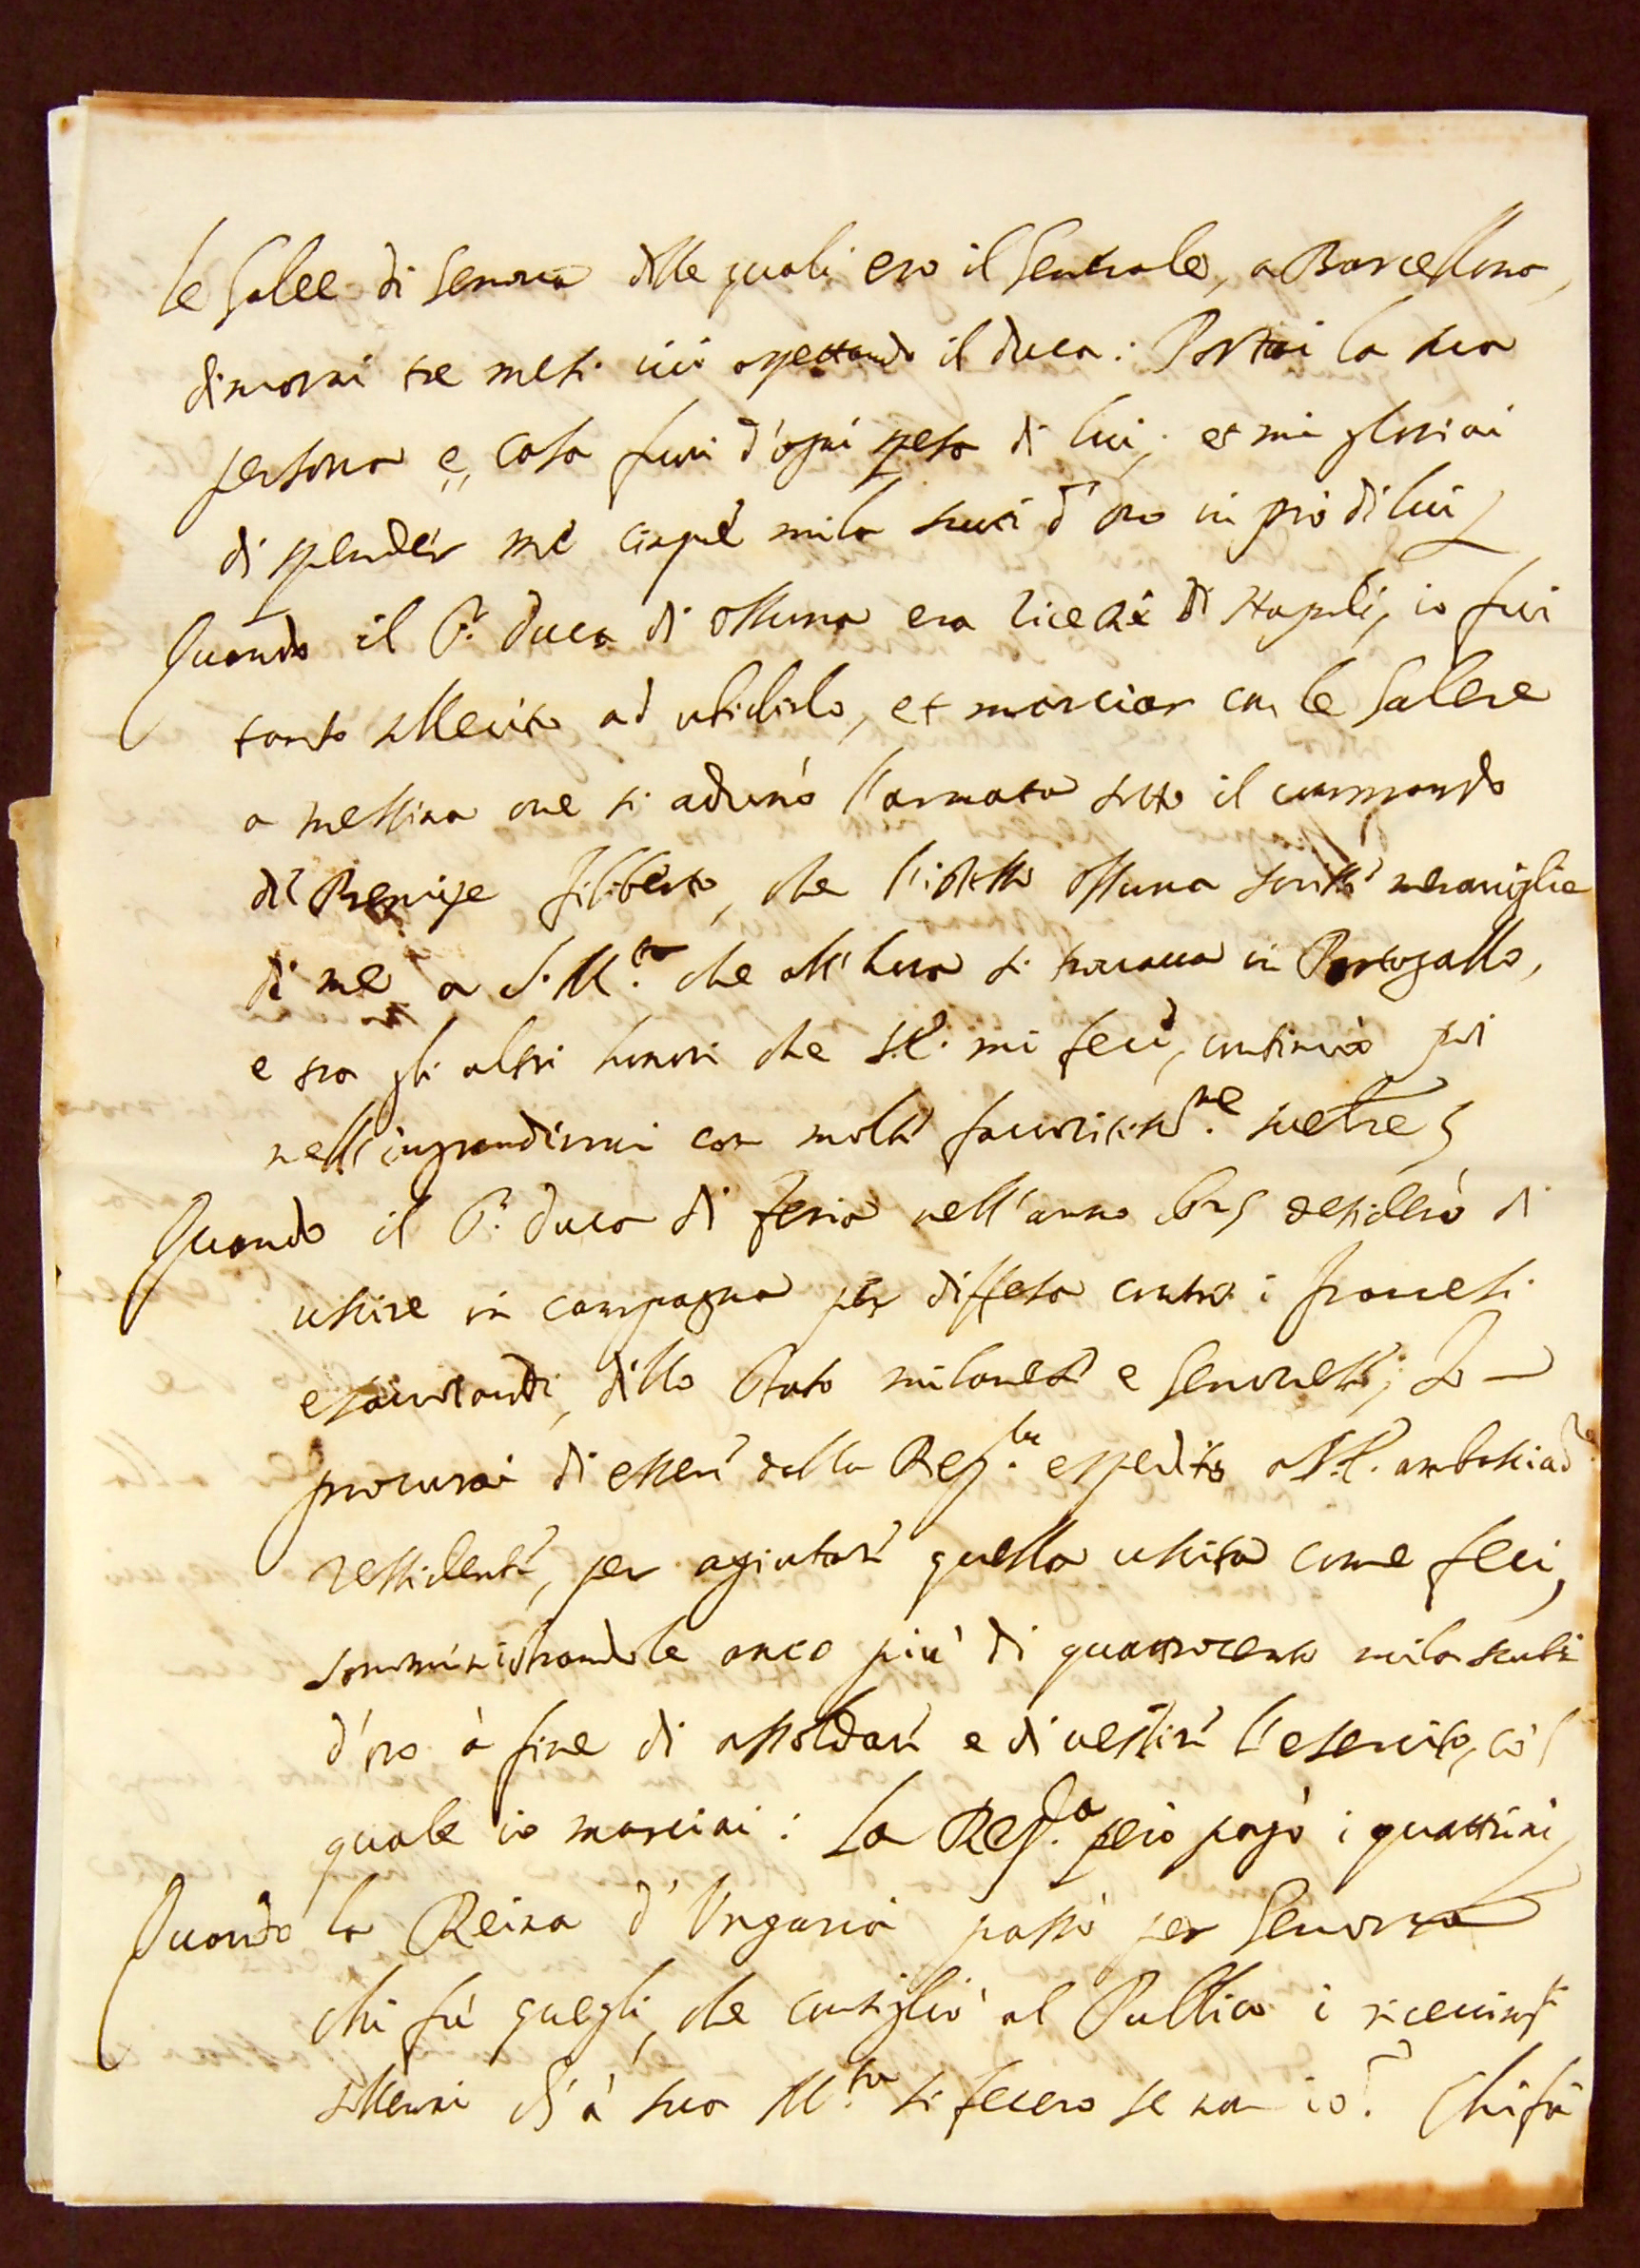 le Galee di Genova delle quali ero il Generale, a Barcellona,
dimorai tre mesi ivi aspettando il duca: Portai la sua
persona e, casa fuori d'ogni spesa di lui; et mi gloriai
di spender me cinque mila scudi d'oro in prò di lui
Quando il S.r Duca di Ossuna era Vicerè di Napoli, io fui
tanto sollecito ad ubidirlo, et marciar con le Galere
a Messina ove si adunò l'armata sotto il commando
del Prencipe Filiberto, che l'istesso Ossuna scrisse meraviglie
di me a S. M.tà che all'hora si trovava in Portogallo,
e tra gli altri honori che S.E. mi fece, continuò poi
nell'ingrandirmi con molte favoritiss.me lettere
Quando il S.r Duca di Feria nell'anno desiderò di
uscire in campagna per diffesa contro i francesi
e savoiardi, dello Stato milanese e Genovese; Io
procurai di esser dalla Rep.ca espedito a S.E. ambasciad.e
ressidente, per agiutare quella uscita come feci,
somministrandole anco più di quattrocento mila scudi
d'oro à fine di assoldare e di vestire l'esercito, col
quale io marciai: La Rep.ca però pagò i quattrini
Quando la Reina d'Ungaria passò per Genova
chi fù quegli, che consigliò al Publico i ricevimti
solenni ch'à sua M.tà si fecero se non io? Chi fù